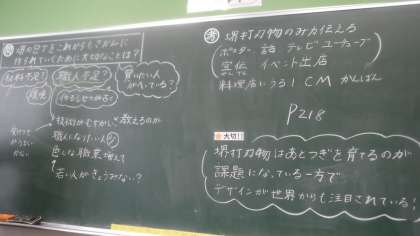 問 堺の包丁をこれからもさかんに
作られていくために大切なことは?
材料不足?
職人不足?
買いたい人
がへっている?
環境
作るとせつめい
技術がむずかしい
教えるのが
職人になりたい人少
色んな職業増えて
若い人がきょうみない?
考 堺打刃物のみ力伝える
ポスター 語 テレビ ユーチューブ
宣伝 イベント出店
せんでん
料理店にうる! CM かんばん
P218
大切!!
堺打刃物はあとつぎを育てるのが
課題になっている一方で
デザインが世界からも注目されている!